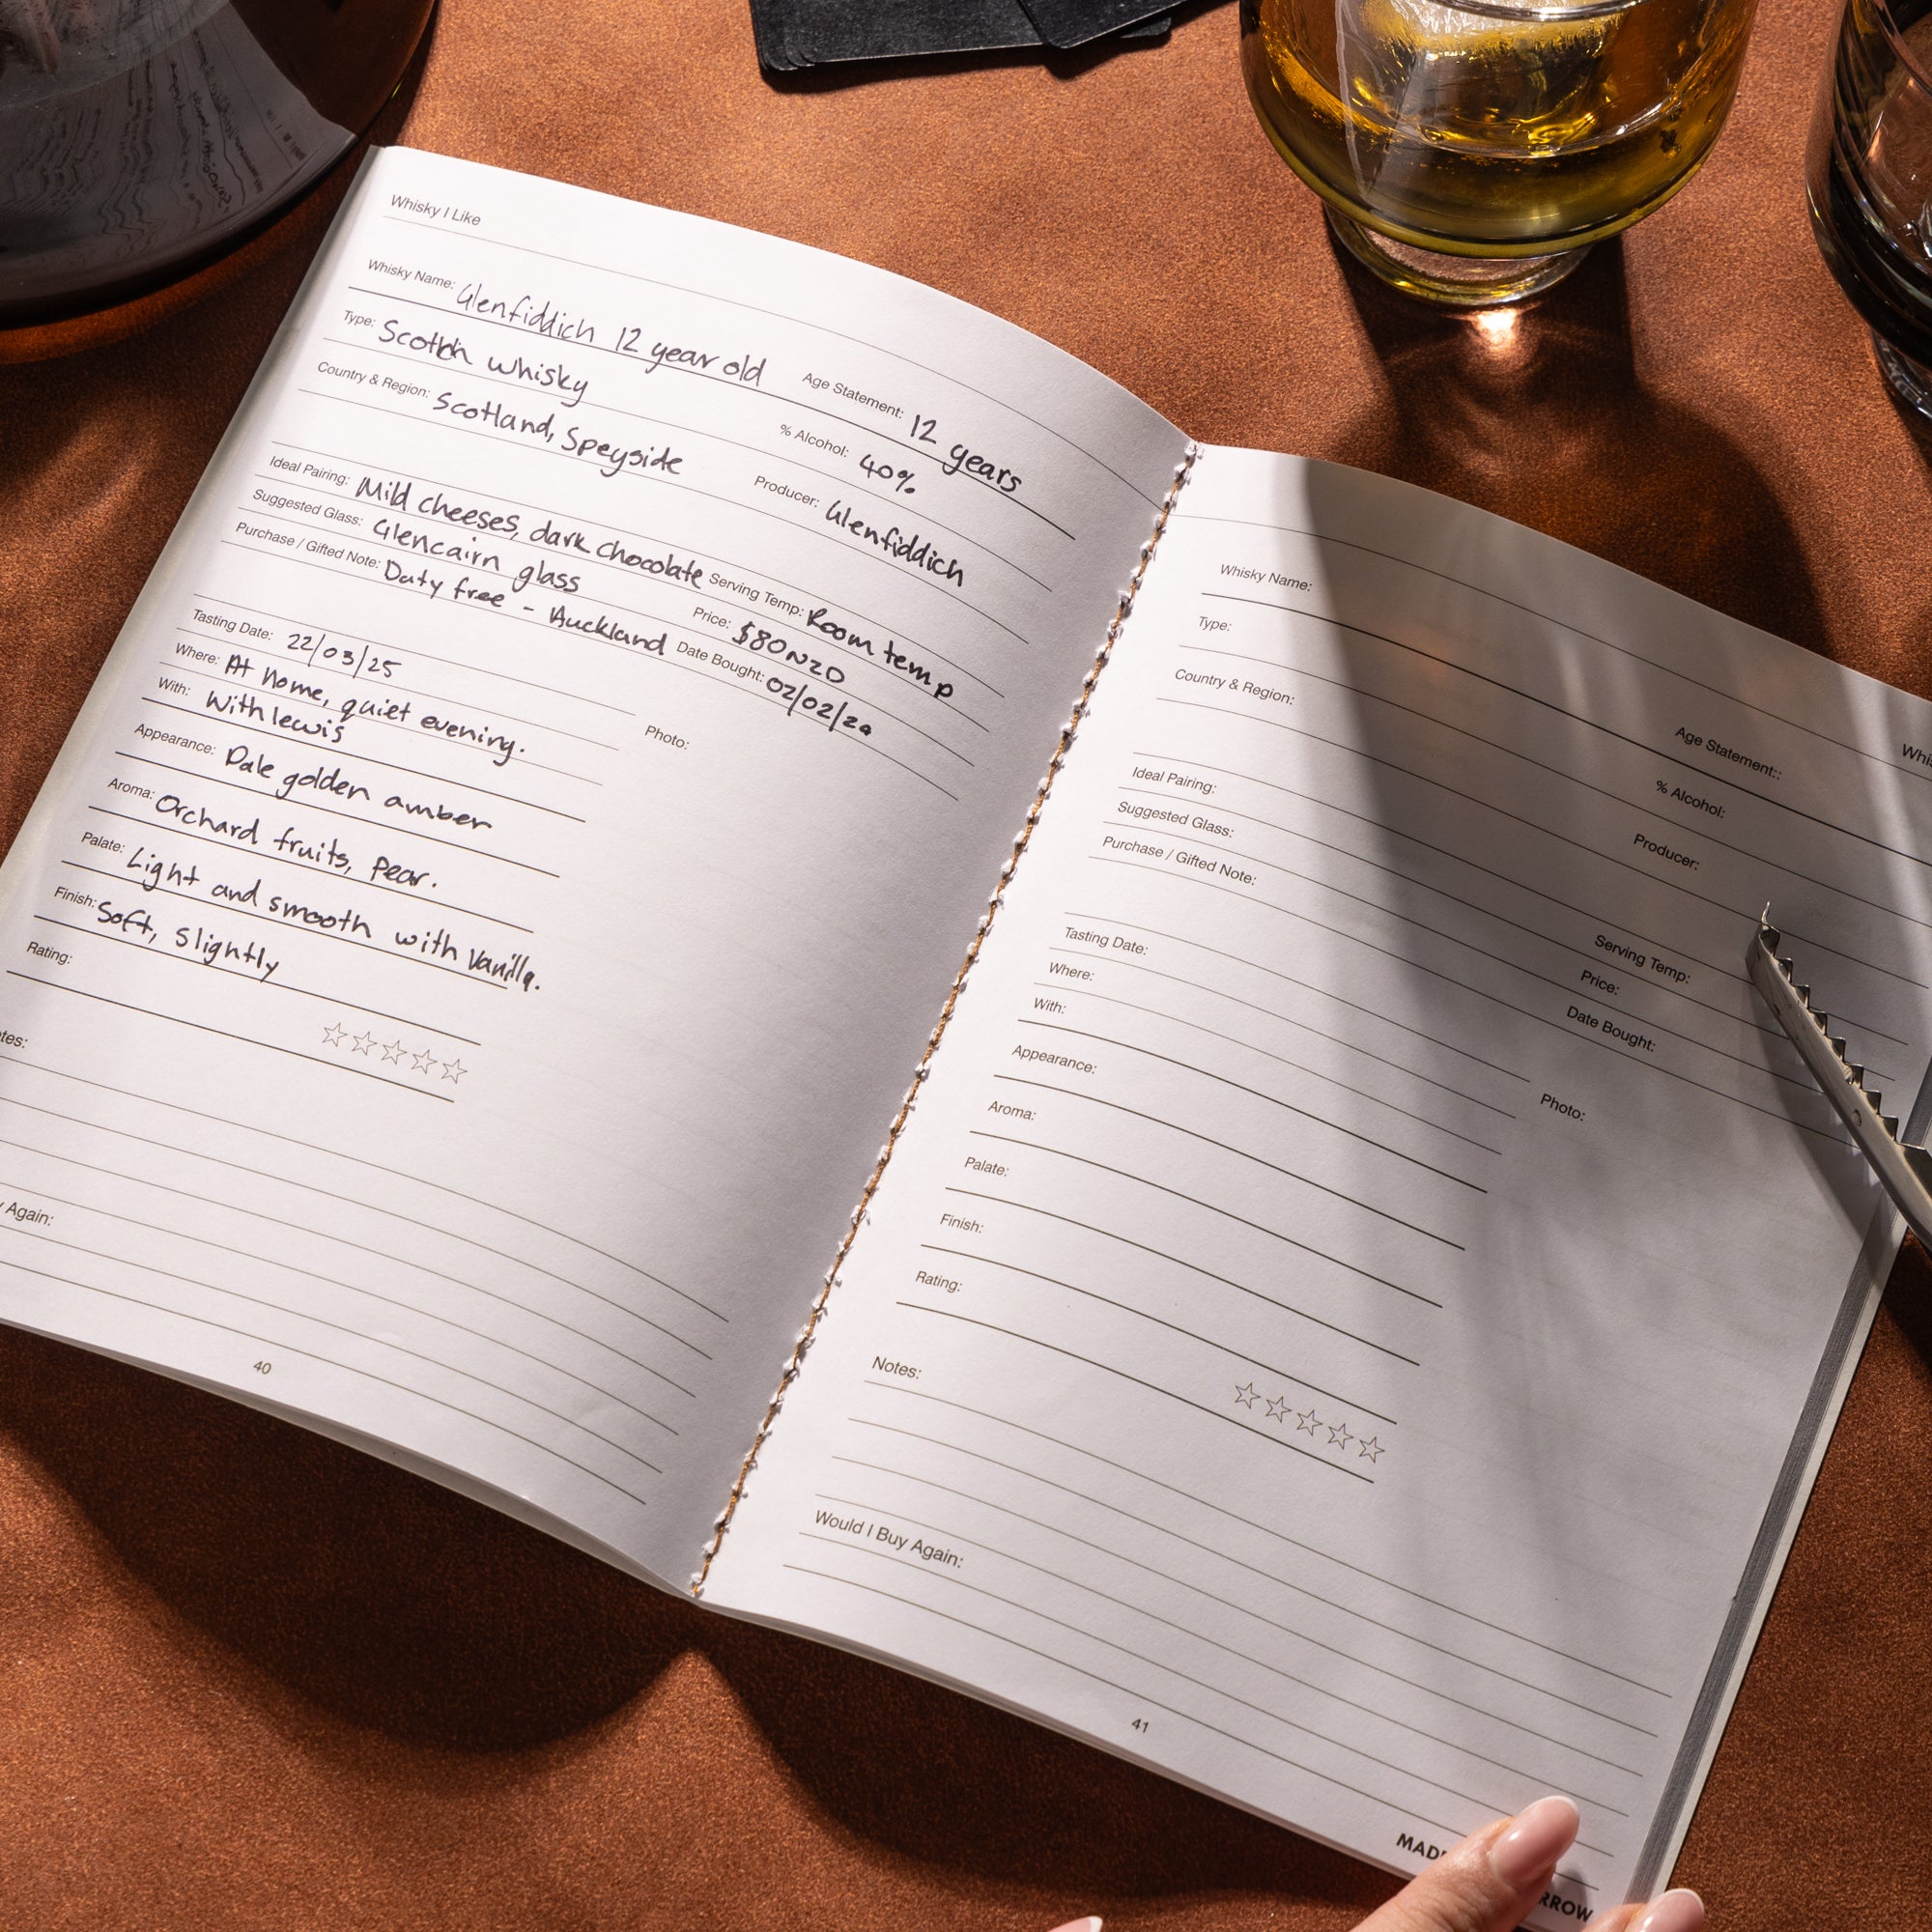 Whisky I Like
Whisky Name: Glenfiddich 12 year old Age Statement: 12 years
Type: Scotch whisky % Alcohol: 40%
Country & Region: Scotland, Speyside Producer: Glenfiddich
Ideal Pairing: Mild cheeses, dark chocolate Serving Temp: Room temp
Suggested Glass: Glencairn glass Price: $80 NZD
Purchase / Gifted Note: Duty free - Auckland Date Bought: 02/02/20
Tasting Date: 22/03/25
Where: At home, quiet evening.
With: With lewis
Photo:
Appearance: Pale golden amber
Aroma: Orchard fruits, pear.
Palate: Light and smooth with vanilla.
Finish: Soft, slightly
Rating:
otes:
y Again:
40
Whis
Whisky Name: Age Statement::
Type: % Alcohol:
Country & Region: Producer:
Ideal Pairing: Serving Temp:
Suggested Glass: Price:
Purchase / Gifted Note: Date Bought:
Tasting Date:
Where:
With:
Photo:
Appearance:
Aroma:
Palate:
Finish:
Rating:
Notes:
Would I Buy Again:
41
MAD
RROW